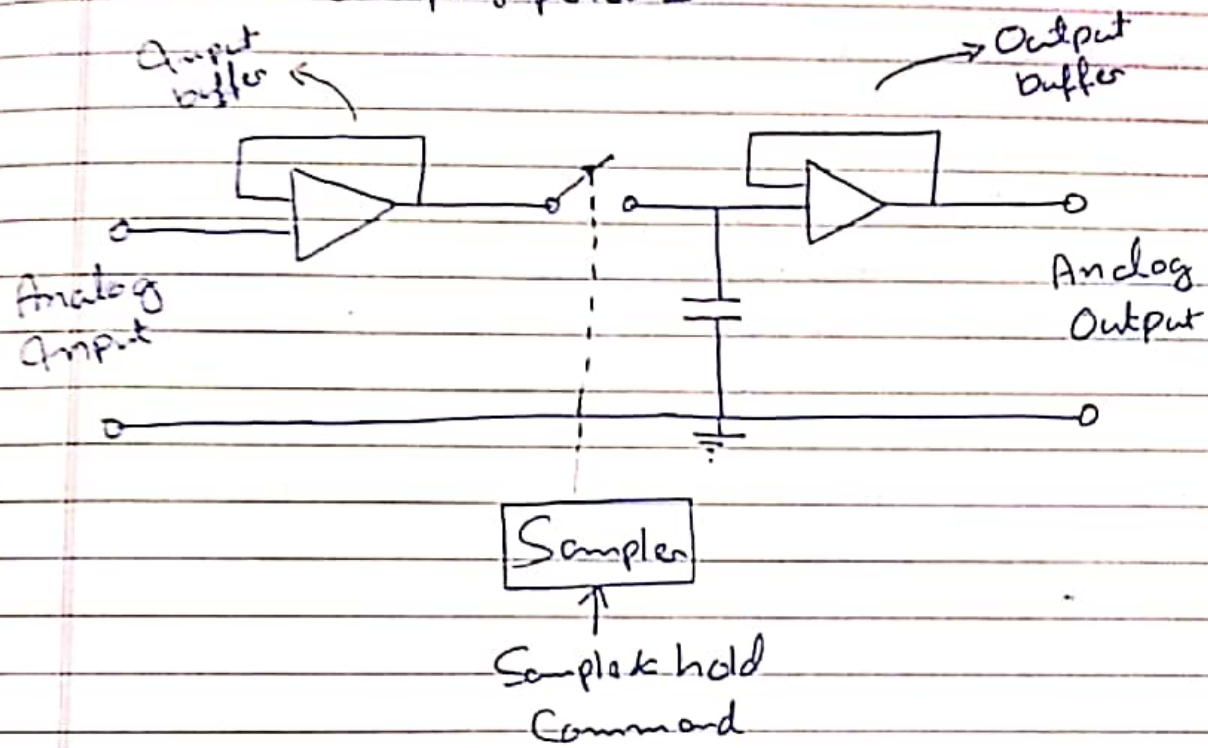 Input
buffer
Output
buffer
Analog
Input
Analog
Output
Sampler
Sample & hold
Command